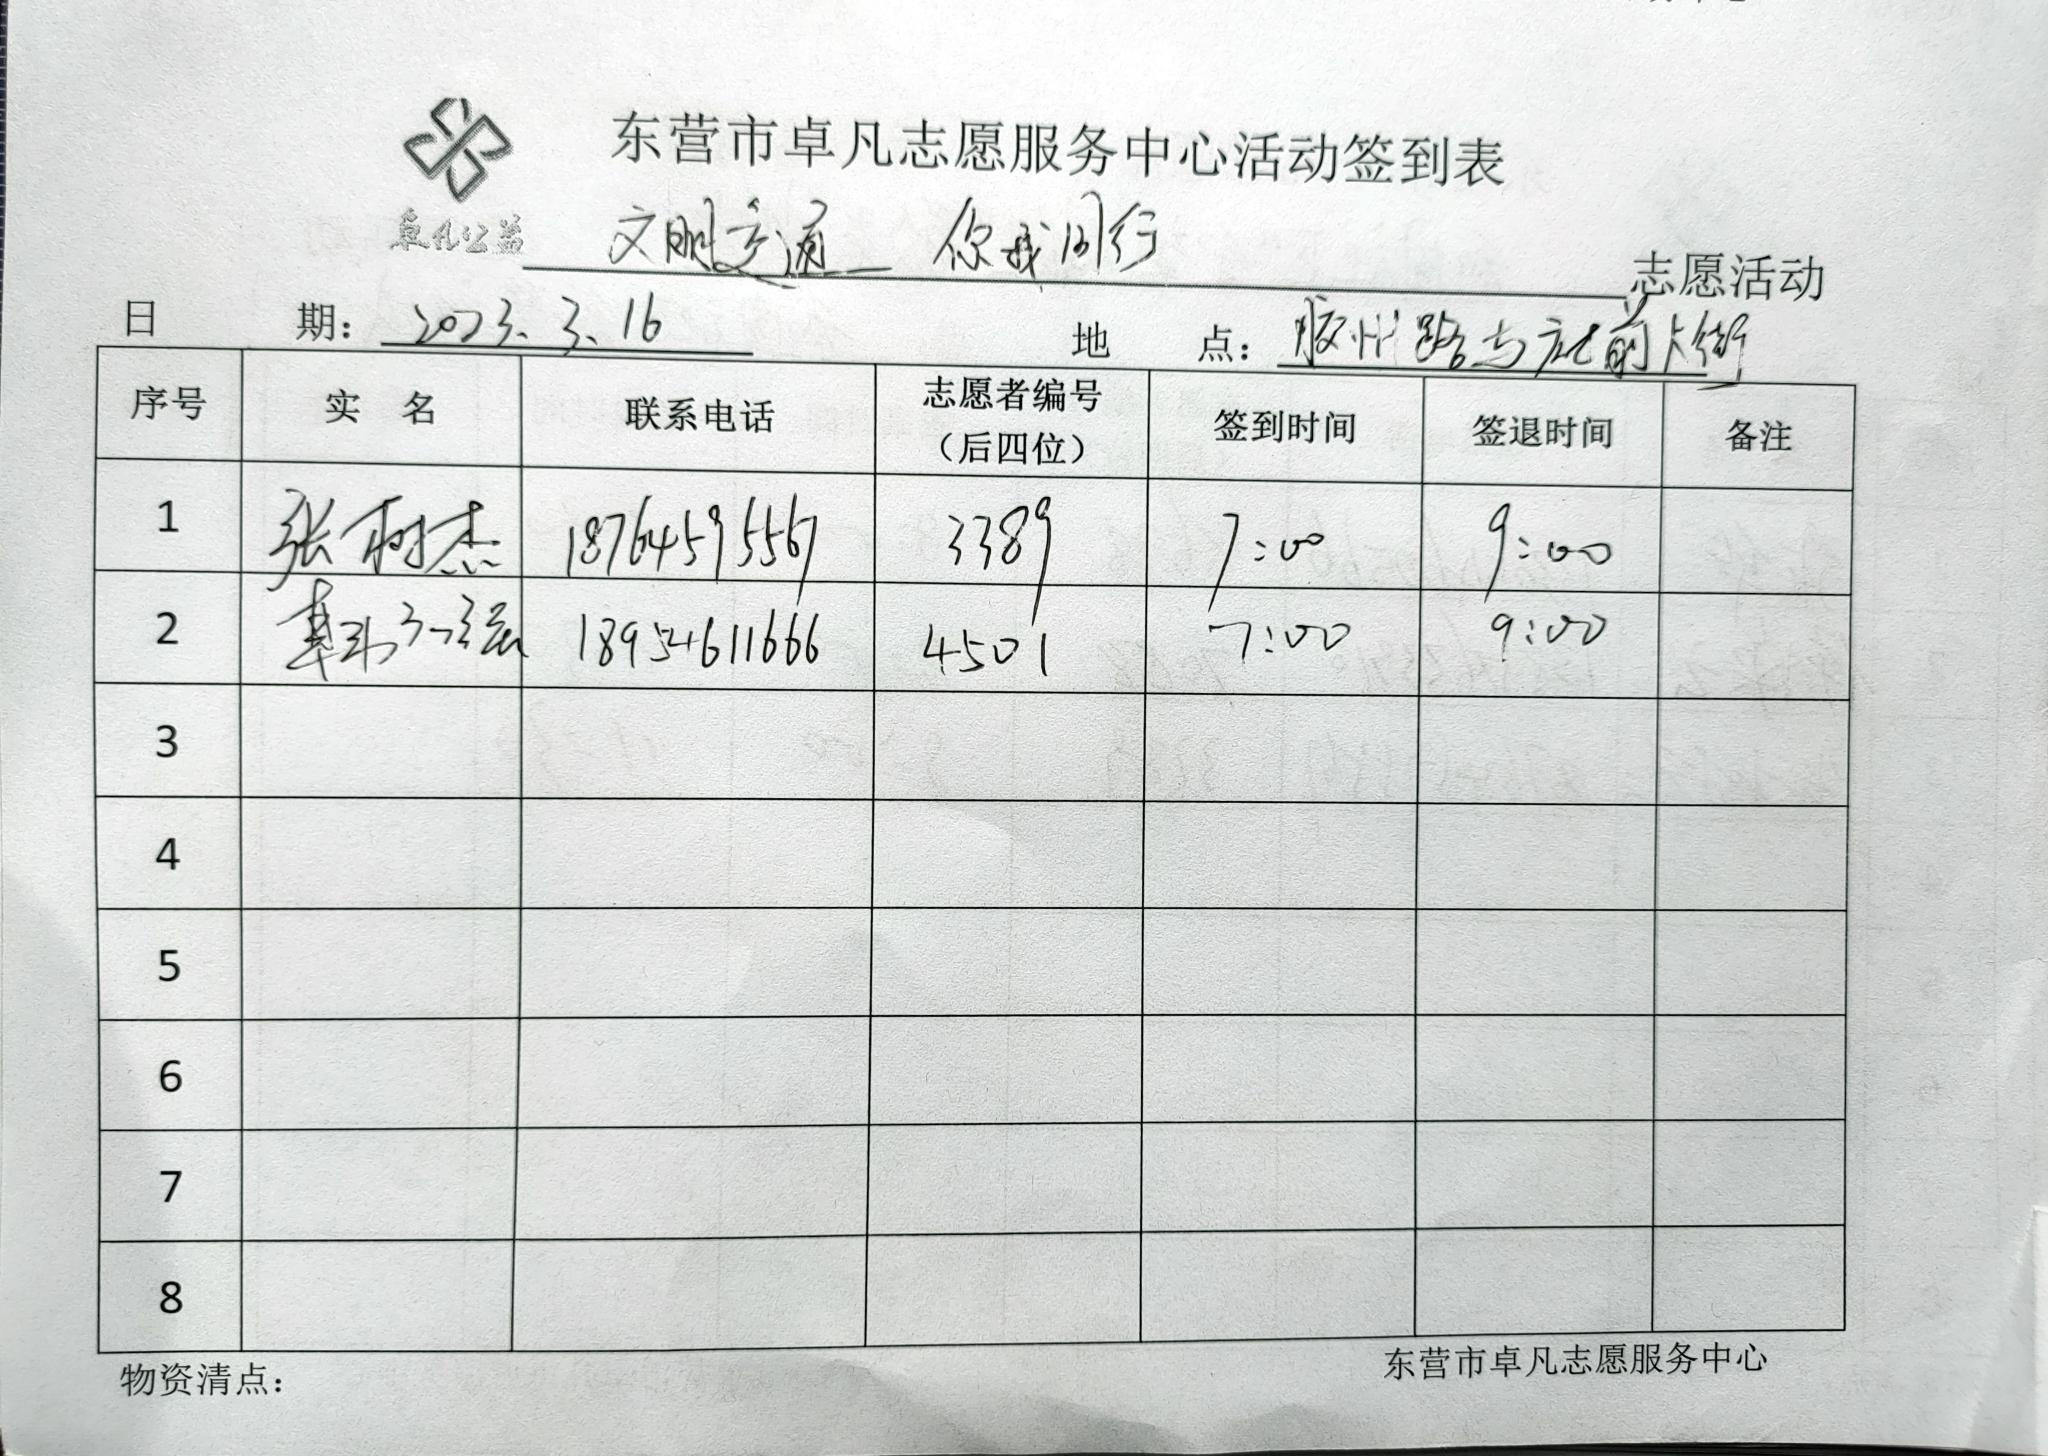 东营市卓凡志愿服务中心活动签到表
卓凡公益
文明交通 你我同行 志愿活动
日 期： 2023.3.16 地 点： 胶州路与府前大街
序号 实 名 联系电话 志愿者编号（后四位） 签到时间 签退时间 备注
1 张树杰 18764595567 3389 7:00 9:00
2 18954611666 4501 7:00 9:00
3
4
5
6
7
8
物资清点： 东营市卓凡志愿服务中心